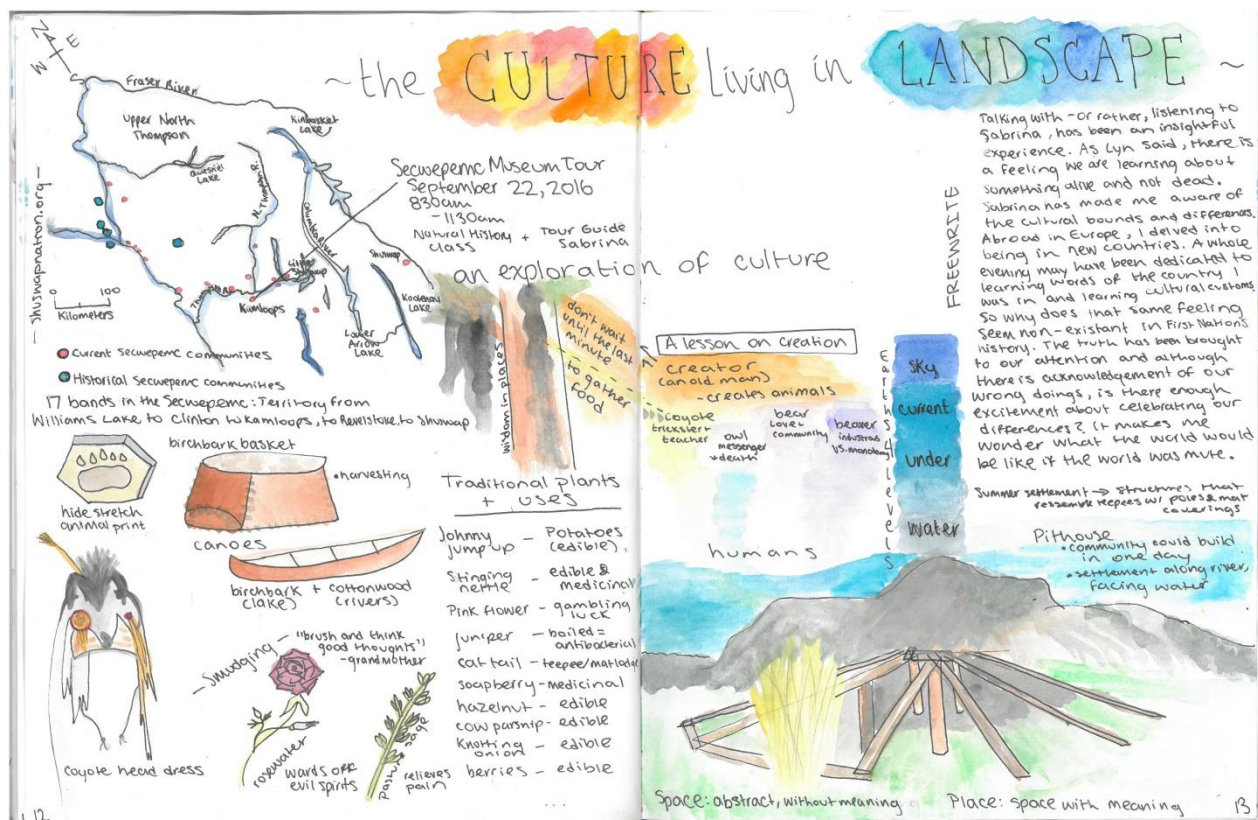 ~the CULTURE Living in LANDSCAPE~
N
E
S
W
Fraser River
Upper North
Thompson
Kinbasket
Lake
Quesnel
Lake
N. Thompson R.
Columbia River
Little
Shuswap
Shuswap
Thompson R.
Kamloops
Kootenay
Lake
Lower
Arrow
Lake
0 100
Kilometers
-shuswapnation.org-
Current secwepemc communities
Historical secwepemc communities
17 bands in the Secwepemc: Territory from
Williams Lake to Clinton to Kamloops, to Revelstoke, to Shuswap
Secwepemc Museum Tour
September 22, 2016
830am
-1130am
Natural History + Tour Guide
class Sabrina
an exploration of culture
wisdom in places
don't wait
until the last
minute
to gather
food
hide stretch
animal print
birchbark basket
•harvesting
canoes
birchbark + cottonwood
(lake) (rivers)
coyote head dress
-Smudging
- "brush and think
good thoughts"
-grandmother
rosewater
wards off
evil spirits
pasture sage
relieves
pain
Traditional plants
+ uses
Johnny jump up - Potatoes (edible)
Stinging nettle - edible & medicinal
Pink flower - gambling luck
juniper - boiled = antibacterial
cat tail - teepee/mat lodge
soapberry - medicinal
hazelnut - edible
cow parsnip - edible
Knotting onion - edible
berries - edible
...
12
A lesson on creation
creator
(an old man)
-creates animals
coyote
trickster +
teacher
owl
messenger
+ death
bear
love +
community
beaver
industrious
vs. monotony
humans
Earths 4 levels
sky
current
under
water
FREEWRITE
Talking with -or rather, listening to
Sabrina, has been an insightful
experience. As Lyn said, there is
a feeling we are learning about
something alive and not dead.
Sabrina has made me aware of
the cultural bounds and differences.
Abroad in Europe, I delved into
being in new countries. A whole
evening may have been dedicated to
learning words of the country I
was in and learning cultural customs.
So why does that same feeling
seem non-existant in First Nations
history. The truth has been brought
to our attention and although
there is acknowledgement of our
wrong doings, is there enough
excitement about celebrating our
differences? It makes me
wonder what the world would
be like if the world was mute.
Summer settlement → structures that
ressemble teepees w/ poles & mat
coverings
Pithouse
•community could build
in one day
•settlement along river,
facing water
Space: abstract, without meaning
Place: space with meaning
13